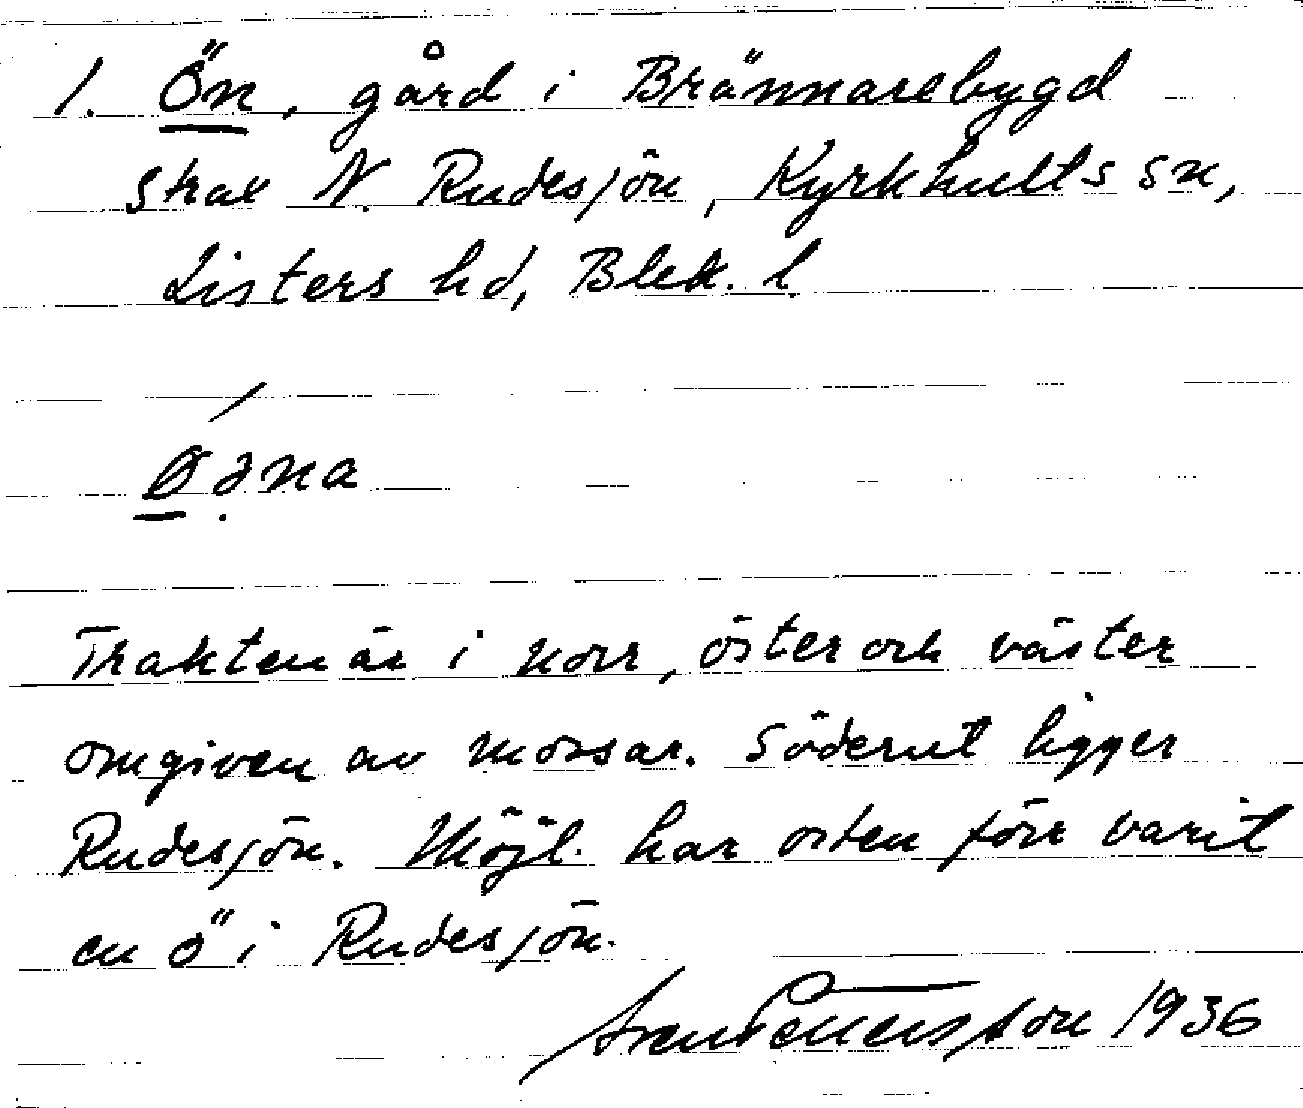 1. Ön, gård i Brännarebygd
strax N. Rudesjön, Kyrkhults sn,
Listers hd, Blek. l.
Øəna
Trakten är i norr, öster och väster
omgiven av mossar. Söderut ligger
Rudesjön. Möjl. har orten förr varit
en ö i Rudesjön.
Sven Pettersson 1936